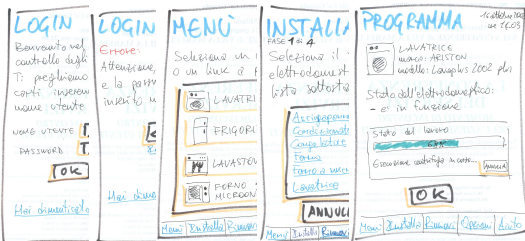 LOGIN
Benvenuto nel
controllo degli
Ti preghiamo
NOME UTENTE
PASSWORD
OK
Hai dimenticato
LOGIN
Errore:
Attenzione,
e la
inserito
MENÙ
Seleziona un
o un link a
LAVATRI
FRIGORI
LAVASTOV
FORNO
MICROON
Menù Installa
INSTALLA
FASE 1 di 4
Seleziona il
elettrodomest
lista sottosta
Asciugapanni
Condizionato
Congelatore
Forno
Forno a micro
Lavatrice
ANNUL
Menù Installa
PROGRAMMA
LAVATRICE
marca: ARISTON
modello: 2002 plus
Stato dell'elettrodomestico:
- è in funzione
Stato del lavoro
Esecuzione centrifuga in corso...
Annulla
OK
Menù Installa Opzioni Aiuto